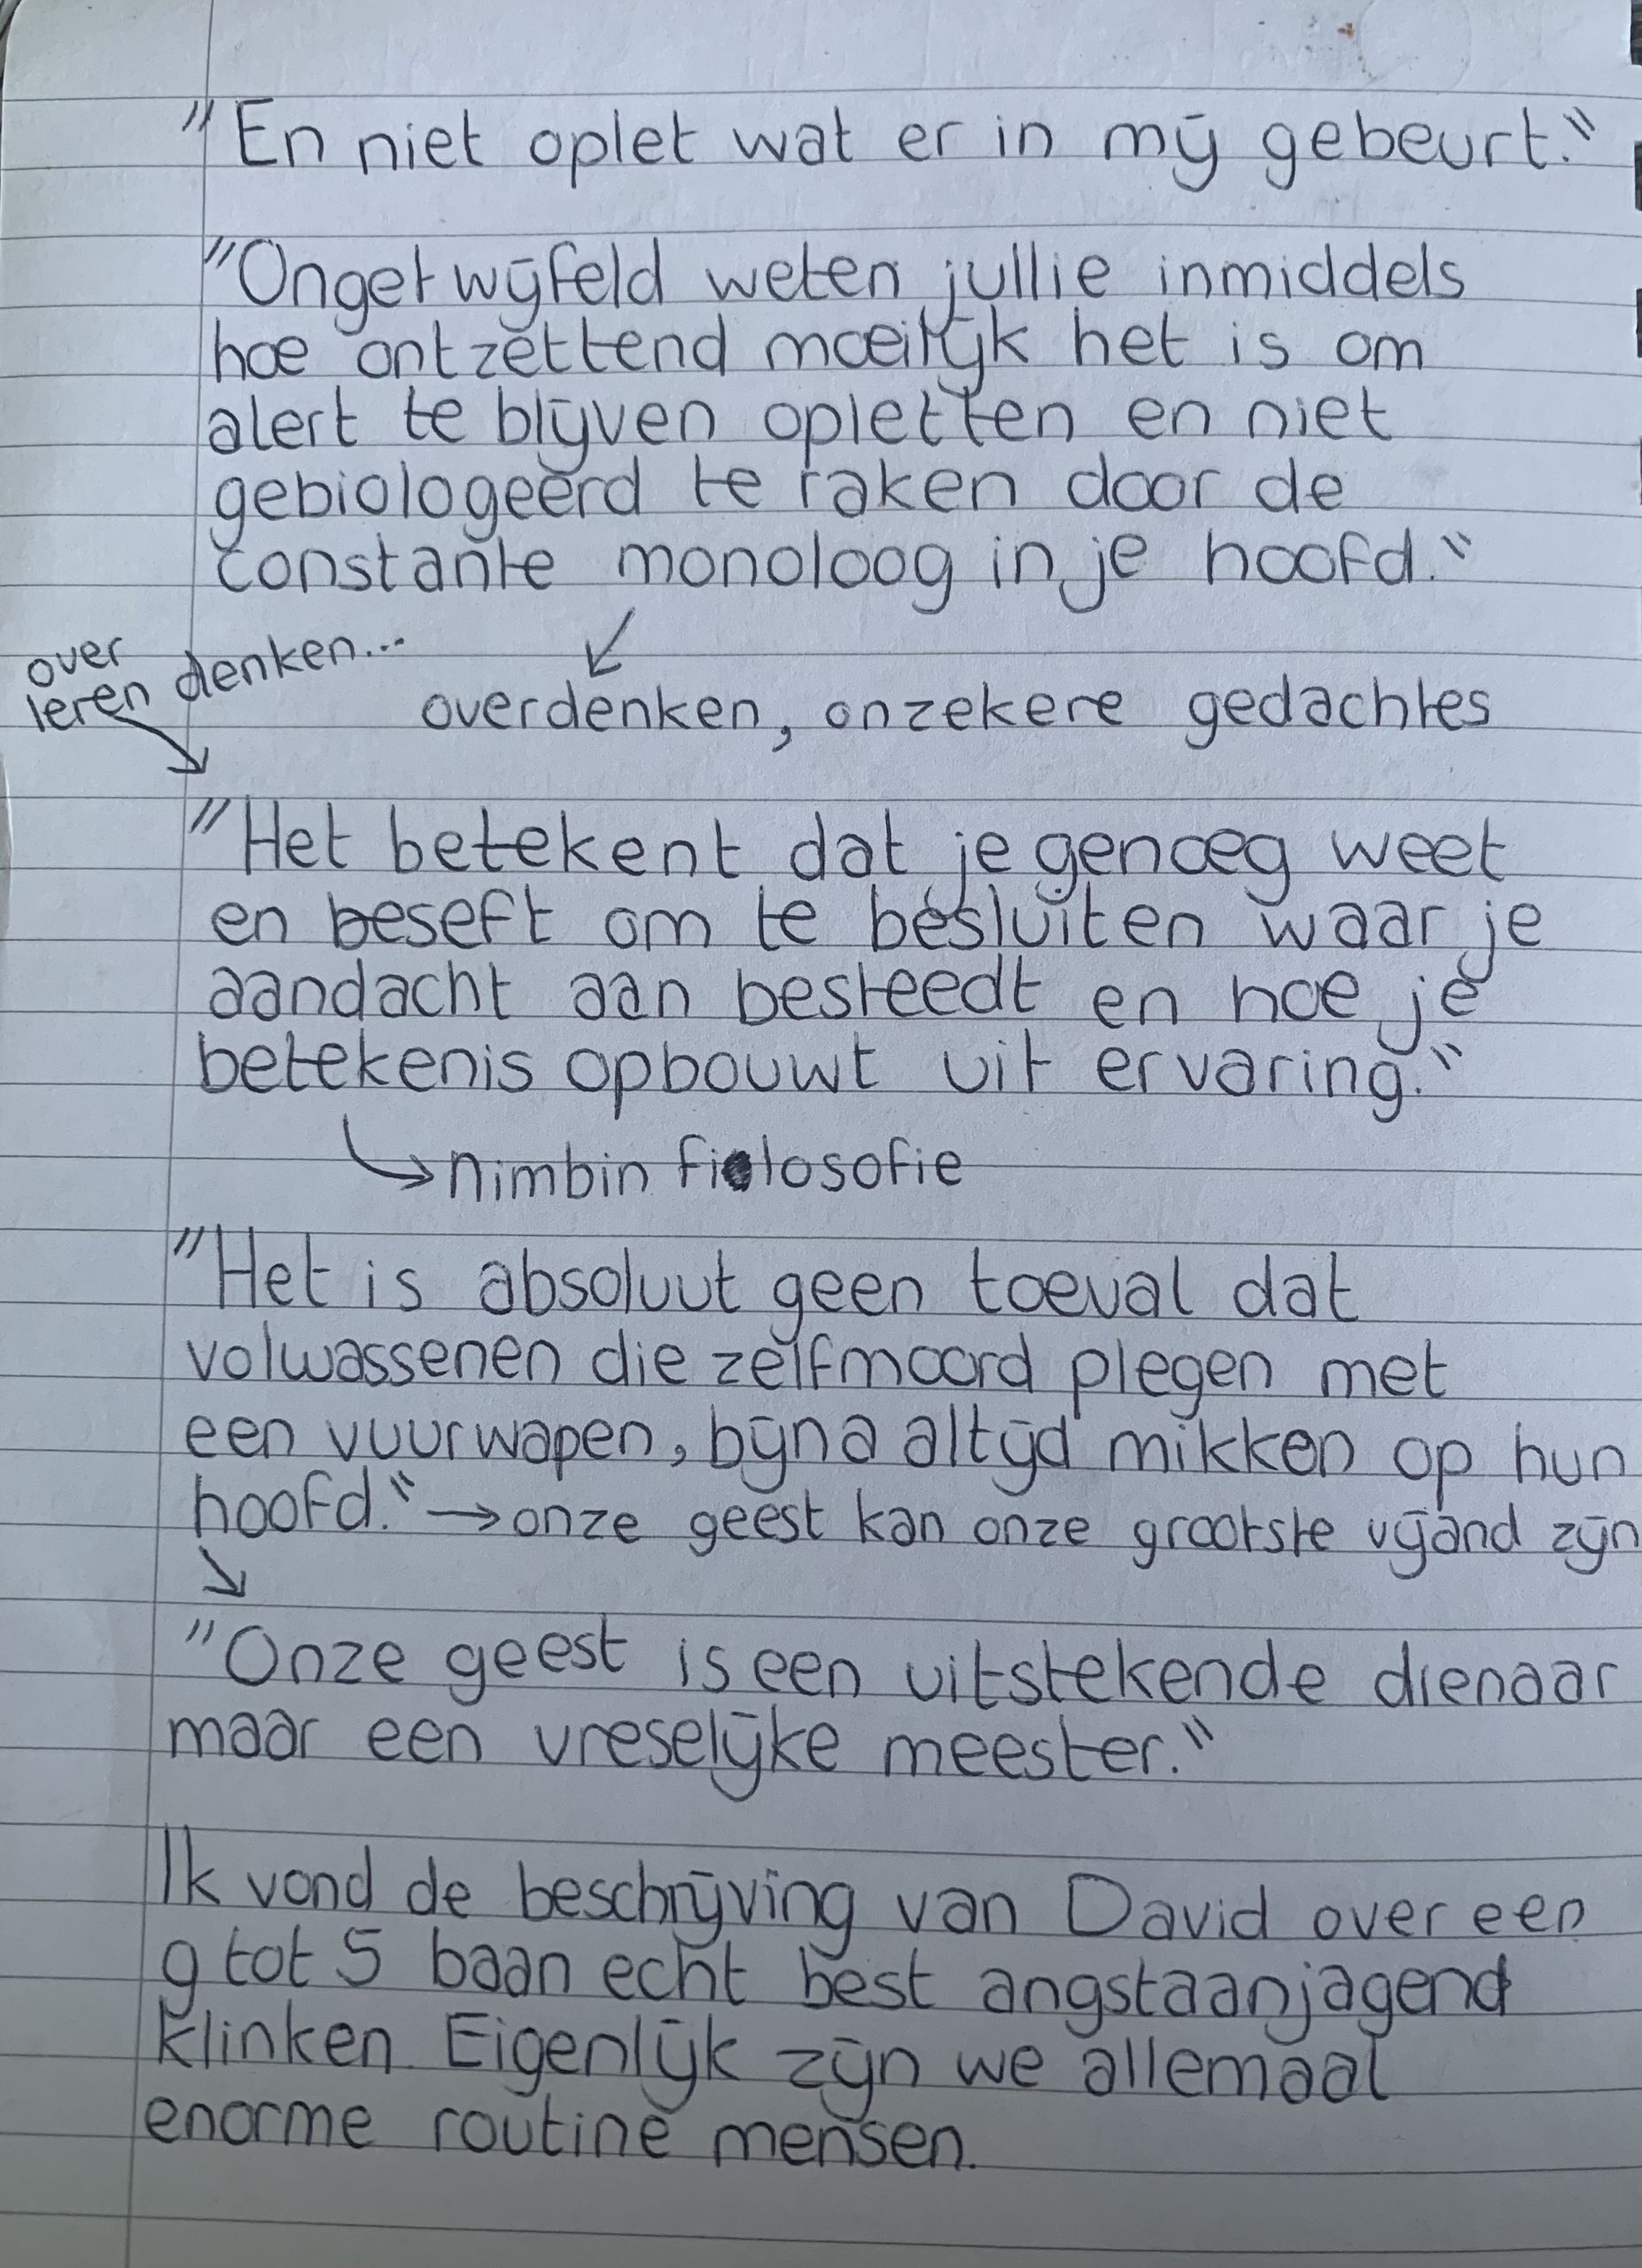 "En niet oplet wat er in mij gebeurt."
"Ongetwijfeld weten jullie inmiddels
hoe ontzettend moeilijk het is om
alert te blijven opletten en niet
gebiologeerd te raken door de
constante monoloog in je hoofd."
over
leren denken...
overdenken, onzekere gedachtes
"Het betekent dat je genoeg weet
en beseft om te besluiten waar je
aandacht aan besteedt en hoe je
betekenis opbouwt uit ervaring."
Nimbin filosofie
"Het is absoluut geen toeval dat
volwassenen die zelfmoord plegen met
een vuurwapen, bijna altijd mikken op hun
hoofd." → onze geest kan onze grootste vijand zijn
"Onze geest is een uitstekende dienaar
maar een vreselijke meester."
Ik vond de beschrijving van David over een
9 tot 5 baan echt best angstaanjagend
klinken. Eigenlijk zijn we allemaal
enorme routine mensen.